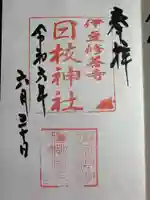 奉拝
伊豆修善寺
日枝神社
令和六年
六月三十日